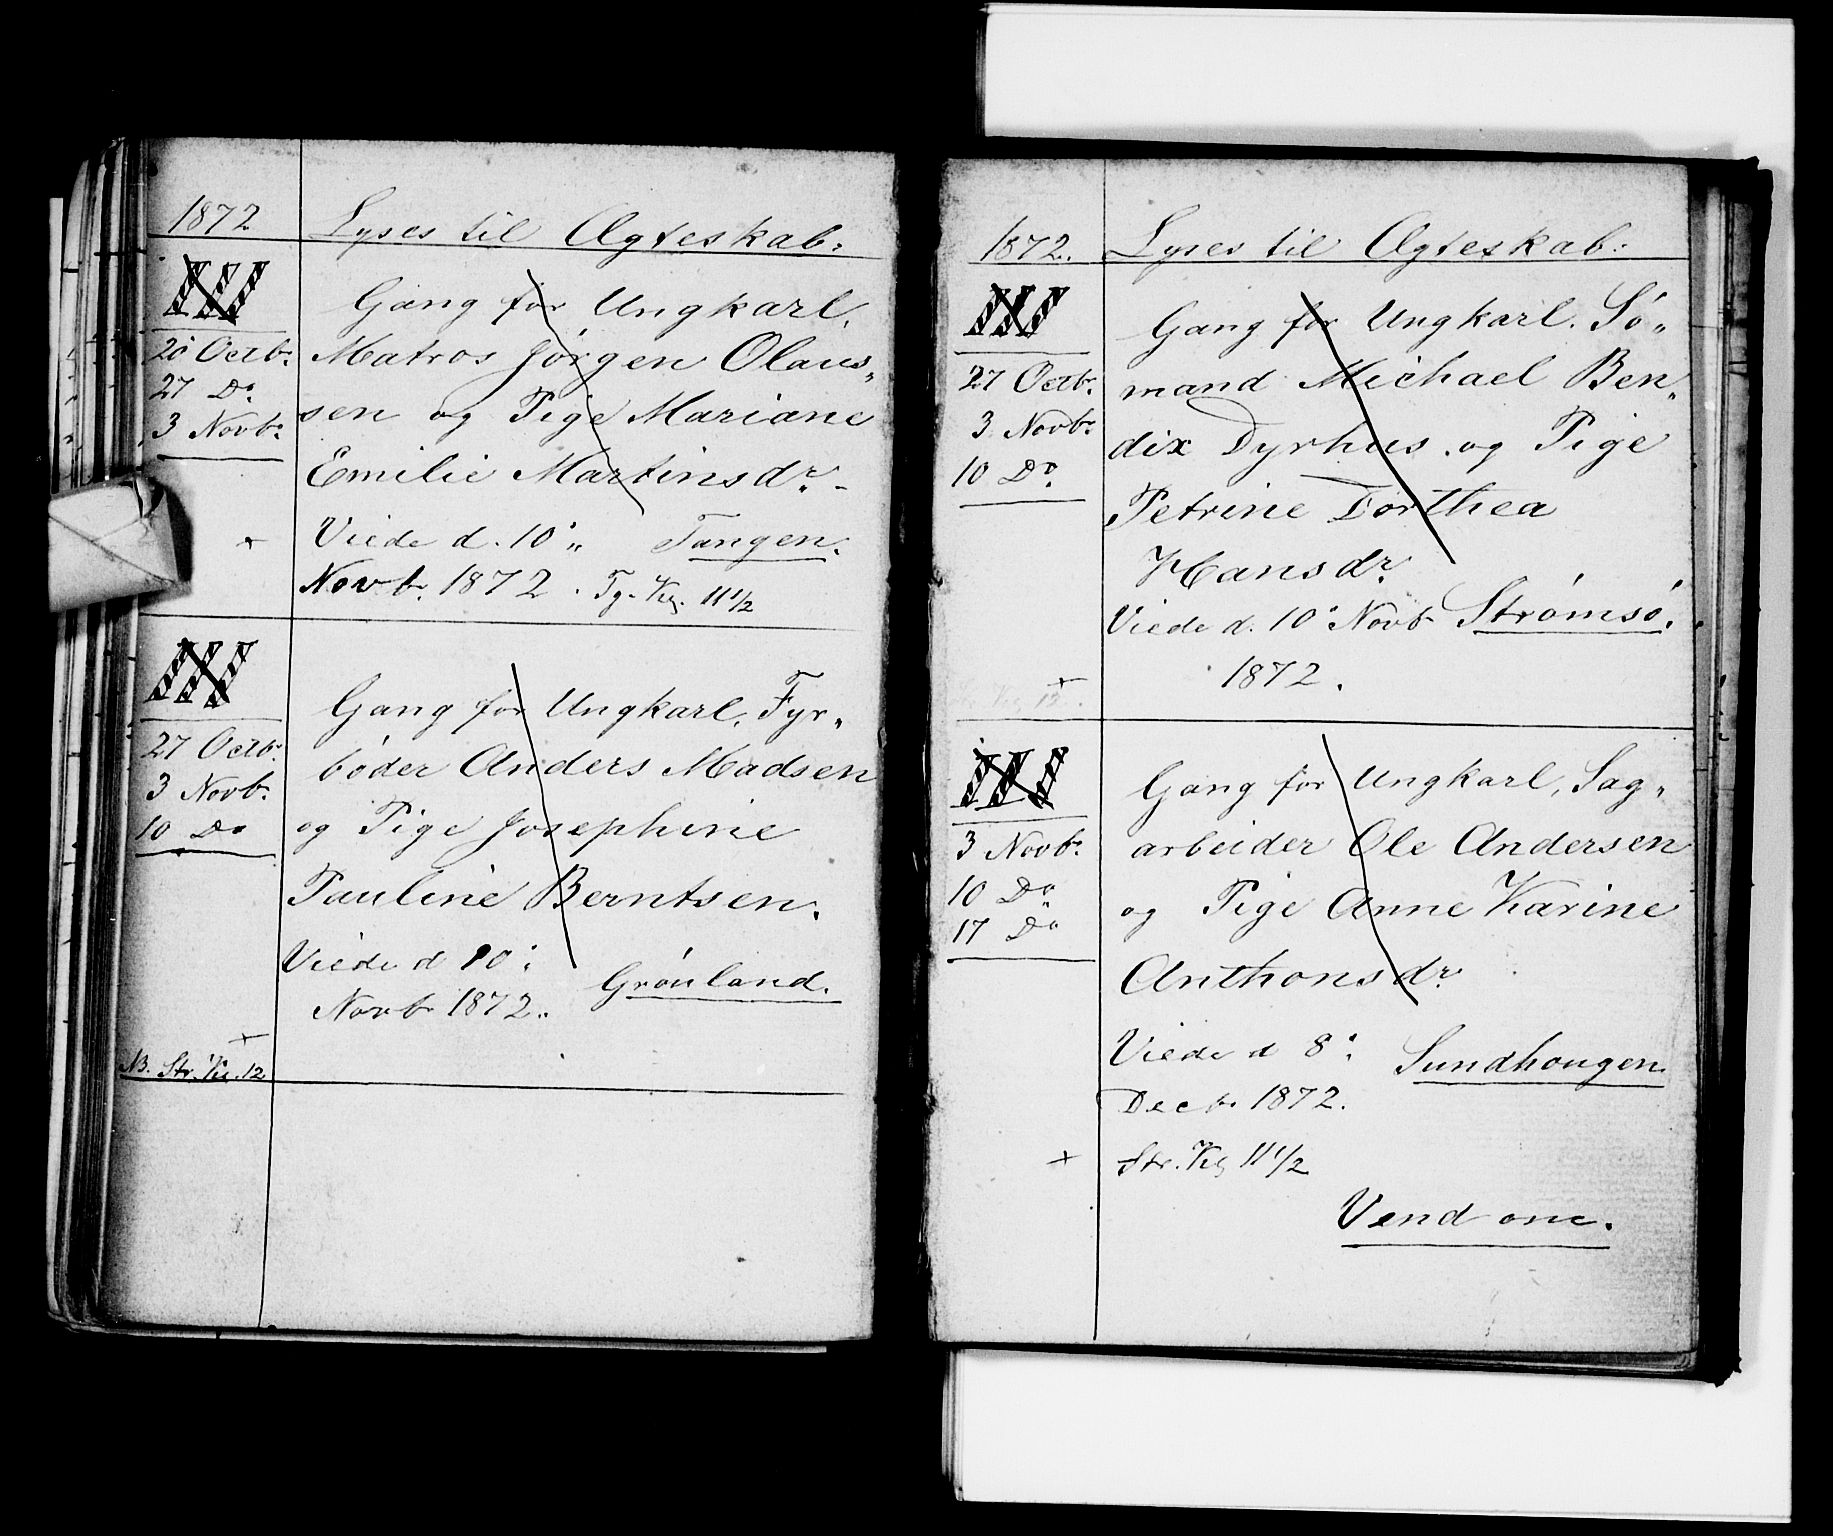 1872
Lyses til Ægteskab:
III
20 Octbr.
27 Do.
3 Novbr.
Gang for Ungkarl,
Matros Jørgen Olaus„
sen og Pige Mariane
Emilie Martinsdr. -
Viede d. 10: „ Tangen.
Novb. 1872. Tg. Kg. 11 1/2
III
27 Octbr.
3 Novbr.
10 Do
Gang for Ungkarl, Fyr„
bøder Anders Madsen
og Pige Josephine
Pauline Berntsen.
Viede d 10:
Grønland.
Novb 1872.
+
NB. Str. Kg. 12
1872.
Lyses til Ægteskab:
III
27 Octbr.
3 Novbr.
10 Do.
Gang for Ungkarl. Sø„
mand Michael Ben„
dix Dyrhus og Pige
Petrine Dorthea
Hansdr.
Viede d. 10: Novb Strømsø.
1872.
+
III
3 Novbr.
10 Do.
17 Do
Gang for Ungkarl, Sag„
arbeider Ole Andersen
og Pige Anne Karine
Anthonsdr.
Viede d 8:
Sundhougen.
Decb. 1872.
+ Str. Kg 11 1/2
Vend om.